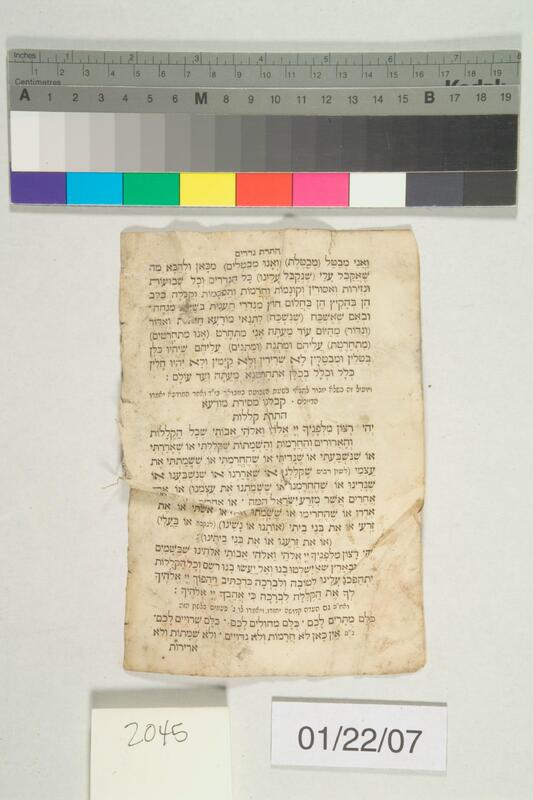 Inches 1 2 3 4 5 6 7 8
Centimetres 1 2 3 4 5 6 7 8 9 10 11 12 13 14 15 16 17 18 19
A 1 2 3 4 5 6 M 8 9 10 11 12 13 14 15 B 17 18 19
התרת נדרים
וַאֲנִי מְבַטֵּל (מְבַטֶּלֶת) (וְאָנוּ מְבַטְּלִים) מִכָּאן וּלְהַבָּא מַה
שֶּׁאֲקַבֵּל עָלַי (שֶׁנְּקַבֵּל עָלֵינוּ) כָּל הַנְּדָרִים וְכָל שְׁבוּעוֹת
וּנְזִירוֹת וְאִסּוּרִין וְקוֹנָמוֹת וַחֲרָמוֹת וְהַסְכָּמוֹת וְקַבָּלָה בְּלֵב
הֵן בְּהָקִיץ הֵן בַּחֲלוֹם חוּץ מִנִּדְרֵי תַעֲנִית מִנְחָה
וּבְאִם שֶׁאֶשְׁכַּח (שֶׁנִּשְׁכַּח) לִתְנַאי מוֹדָעָא וְאֶדּוֹר
(וְנִדּוֹר) מֵהַיּוֹם עוֹד מֵעַתָּה אֲנִי מִתְחָרֵט (אָנוּ מִתְחָרְטִים)
(מִתְחָרֶטֶת) עֲלֵיהֶם וּמַתְנֶה (וּמַתְנִים) עֲלֵיהֶם שֶׁיִּהְיוּ כֻּלָּן
בְּטֵלִין וּמְבֻטָּלִין לָא שְׁרִירִין וְלָא קַיָּמִין וְלָא יִהְיוּ חָלִין
כְּלָל וּכְלָל בְּכֻלָּן אִתְחֲרַטְנָא מֵעַתָּה וְעַד עוֹלָם :
קבלנו מסירת מודעא
התרת קללות
יְהִי רָצוֹן מִלְּפָנֶיךָ יְיָ אֱלֹהַי וֵאלֹהֵי אֲבוֹתַי שֶׁכָּל הַקְּלָלוֹת
וְהָאֲרוּרִים וְהַחֲרָמוֹת וְהַשְּׁמָתוֹת שֶׁקִּלַּלְתִּי אוֹ שֶׁאָרַרְתִּי
אוֹ שֶׁנִּשְׁבַּעְתִּי אוֹ שֶׁנִּדִּיתִי אוֹ שֶׁהֶחֱרַמְתִּי אוֹ שֶׁשִּׁמַּתִּי אֶת
עַצְמִי (לשון רבים שֶׁקִּלַּלְנוּ אוֹ שֶׁאָרַרְנוּ אוֹ שֶׁנִּשְׁבַּעְנוּ אוֹ
שֶׁנִּדִּינוּ אוֹ שֶׁהֶחֱרַמְנוּ אוֹ שֶׁשִּׁמַּתְנוּ אֶת עַצְמֵנוּ) אוֹ
אֲחֵרִים אֲשֶׁר מִזֶּרַע יִשְׂרָאֵל הֵמָּה אוֹ
אֵרְרוּ אוֹ שֶׁהֶחֱרִימוּ אוֹ אוֹתִי אוֹ אֶת
זַרְעִי אוֹ אֶת בְּנֵי בֵיתִי (אוֹתָנוּ אוֹ נָשֵׁינוּ) (לנקבה אוֹ בַּעֲלִי)
(אוֹ אֶת זַרְעֵנוּ אוֹ אֶת בְּנֵי בֵיתֵינוּ):
יְהִי רָצוֹן מִלְּפָנֶיךָ יְיָ אֱלֹהַי וֵאלֹהֵי אֲבוֹתַי אֱלֹהֵינוּ שֶׁבַּשָּׁמַיִם
וּבָאָרֶץ שֶׁאַל יִשְׁלְטוּ בָּנוּ וְאַל יַעֲשׂוּ בָּנוּ רֹשֶׁם וְכָל הַקְּלָלוֹת
יִתְהַפְּכוּ עָלֵינוּ לְטוֹבָה וְלִבְרָכָה כְּדִכְתִיב וַיַּהֲפוֹךְ יְיָ אֱלֹהֶיךָ
לְךָ אֶת הַקְּלָלָה לִבְרָכָה כִּי אֲהֵבְךָ יְיָ אֱלֹהֶיךָ :
כֻּלָּם מֻתָּרִים לָכֶם · כֻּלָּם מְחוּלִים לָכֶם · כֻּלָּם שְׁרוּיִים לָכֶם ·
אֵין כָּאן לֹא חֲרָמוֹת וְלֹא נִדּוּיִים · וְלֹא שַׁמָּתוֹת וְלֹא
אֲרִירוֹת
2045
01/22/07